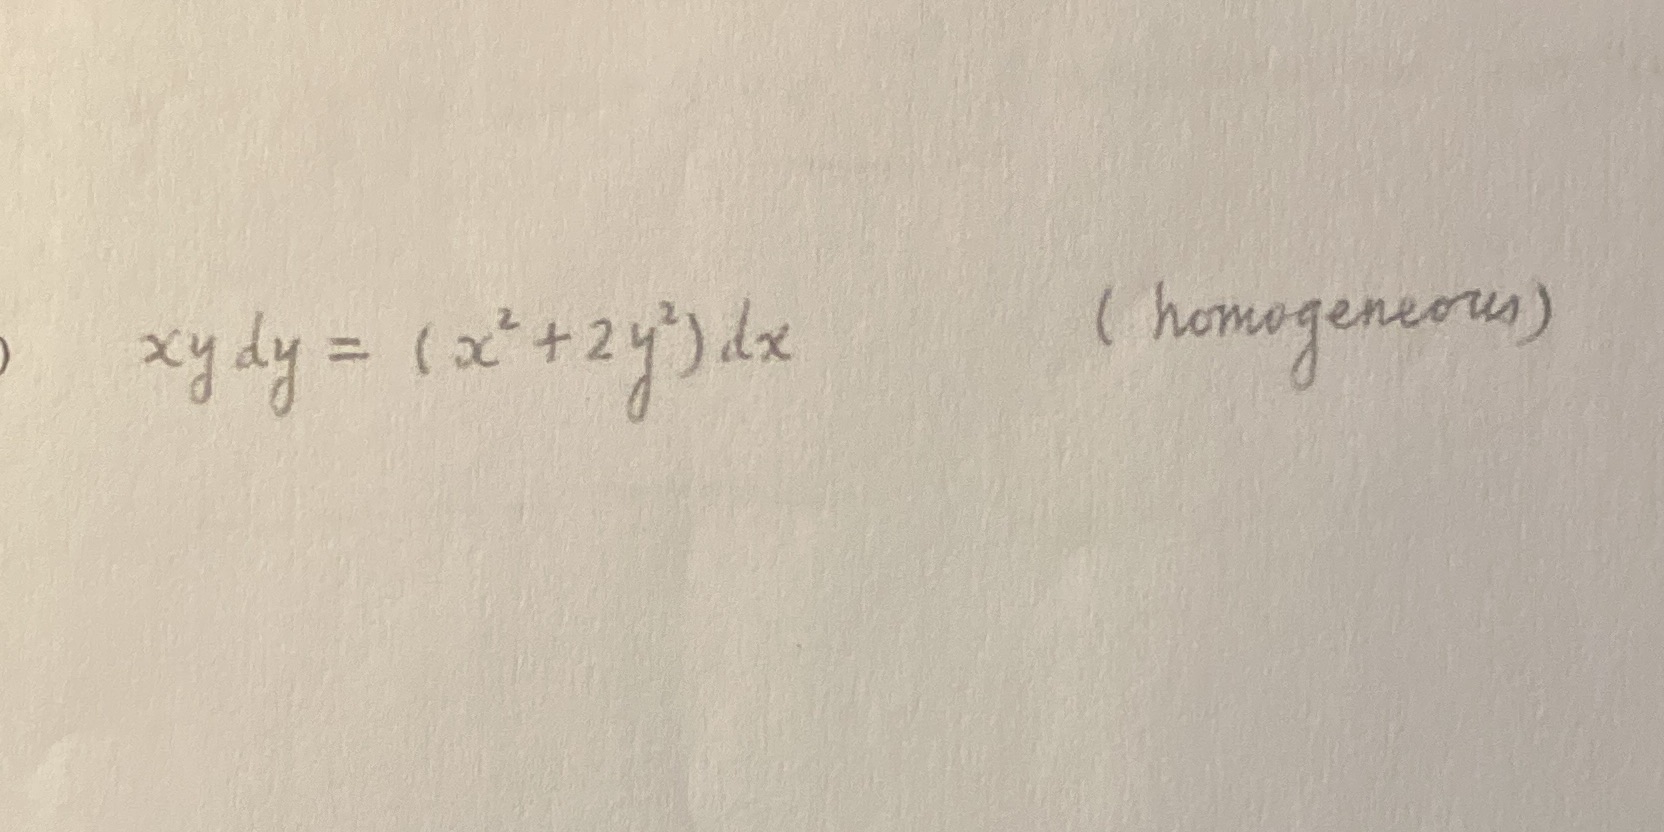 ) xy dy = (x² + 2y²) dx (homogeneous)